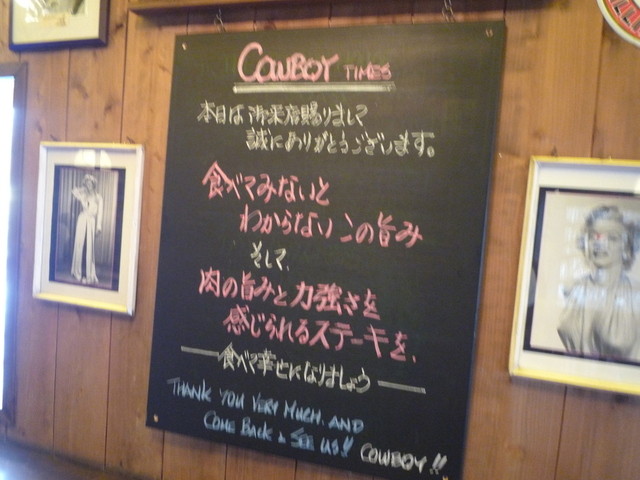 COWBOY TIMES
本日は御来店賜りまして
誠にありがとうございます。
食べてみないと
わからないこの旨み
そして、
肉の旨みと力強さを
感じられるステーキを、
食べて幸せになりましょう
THANK YOU VERY MUCH. AND
COME BACK & SEE US!!
COWBOY!!